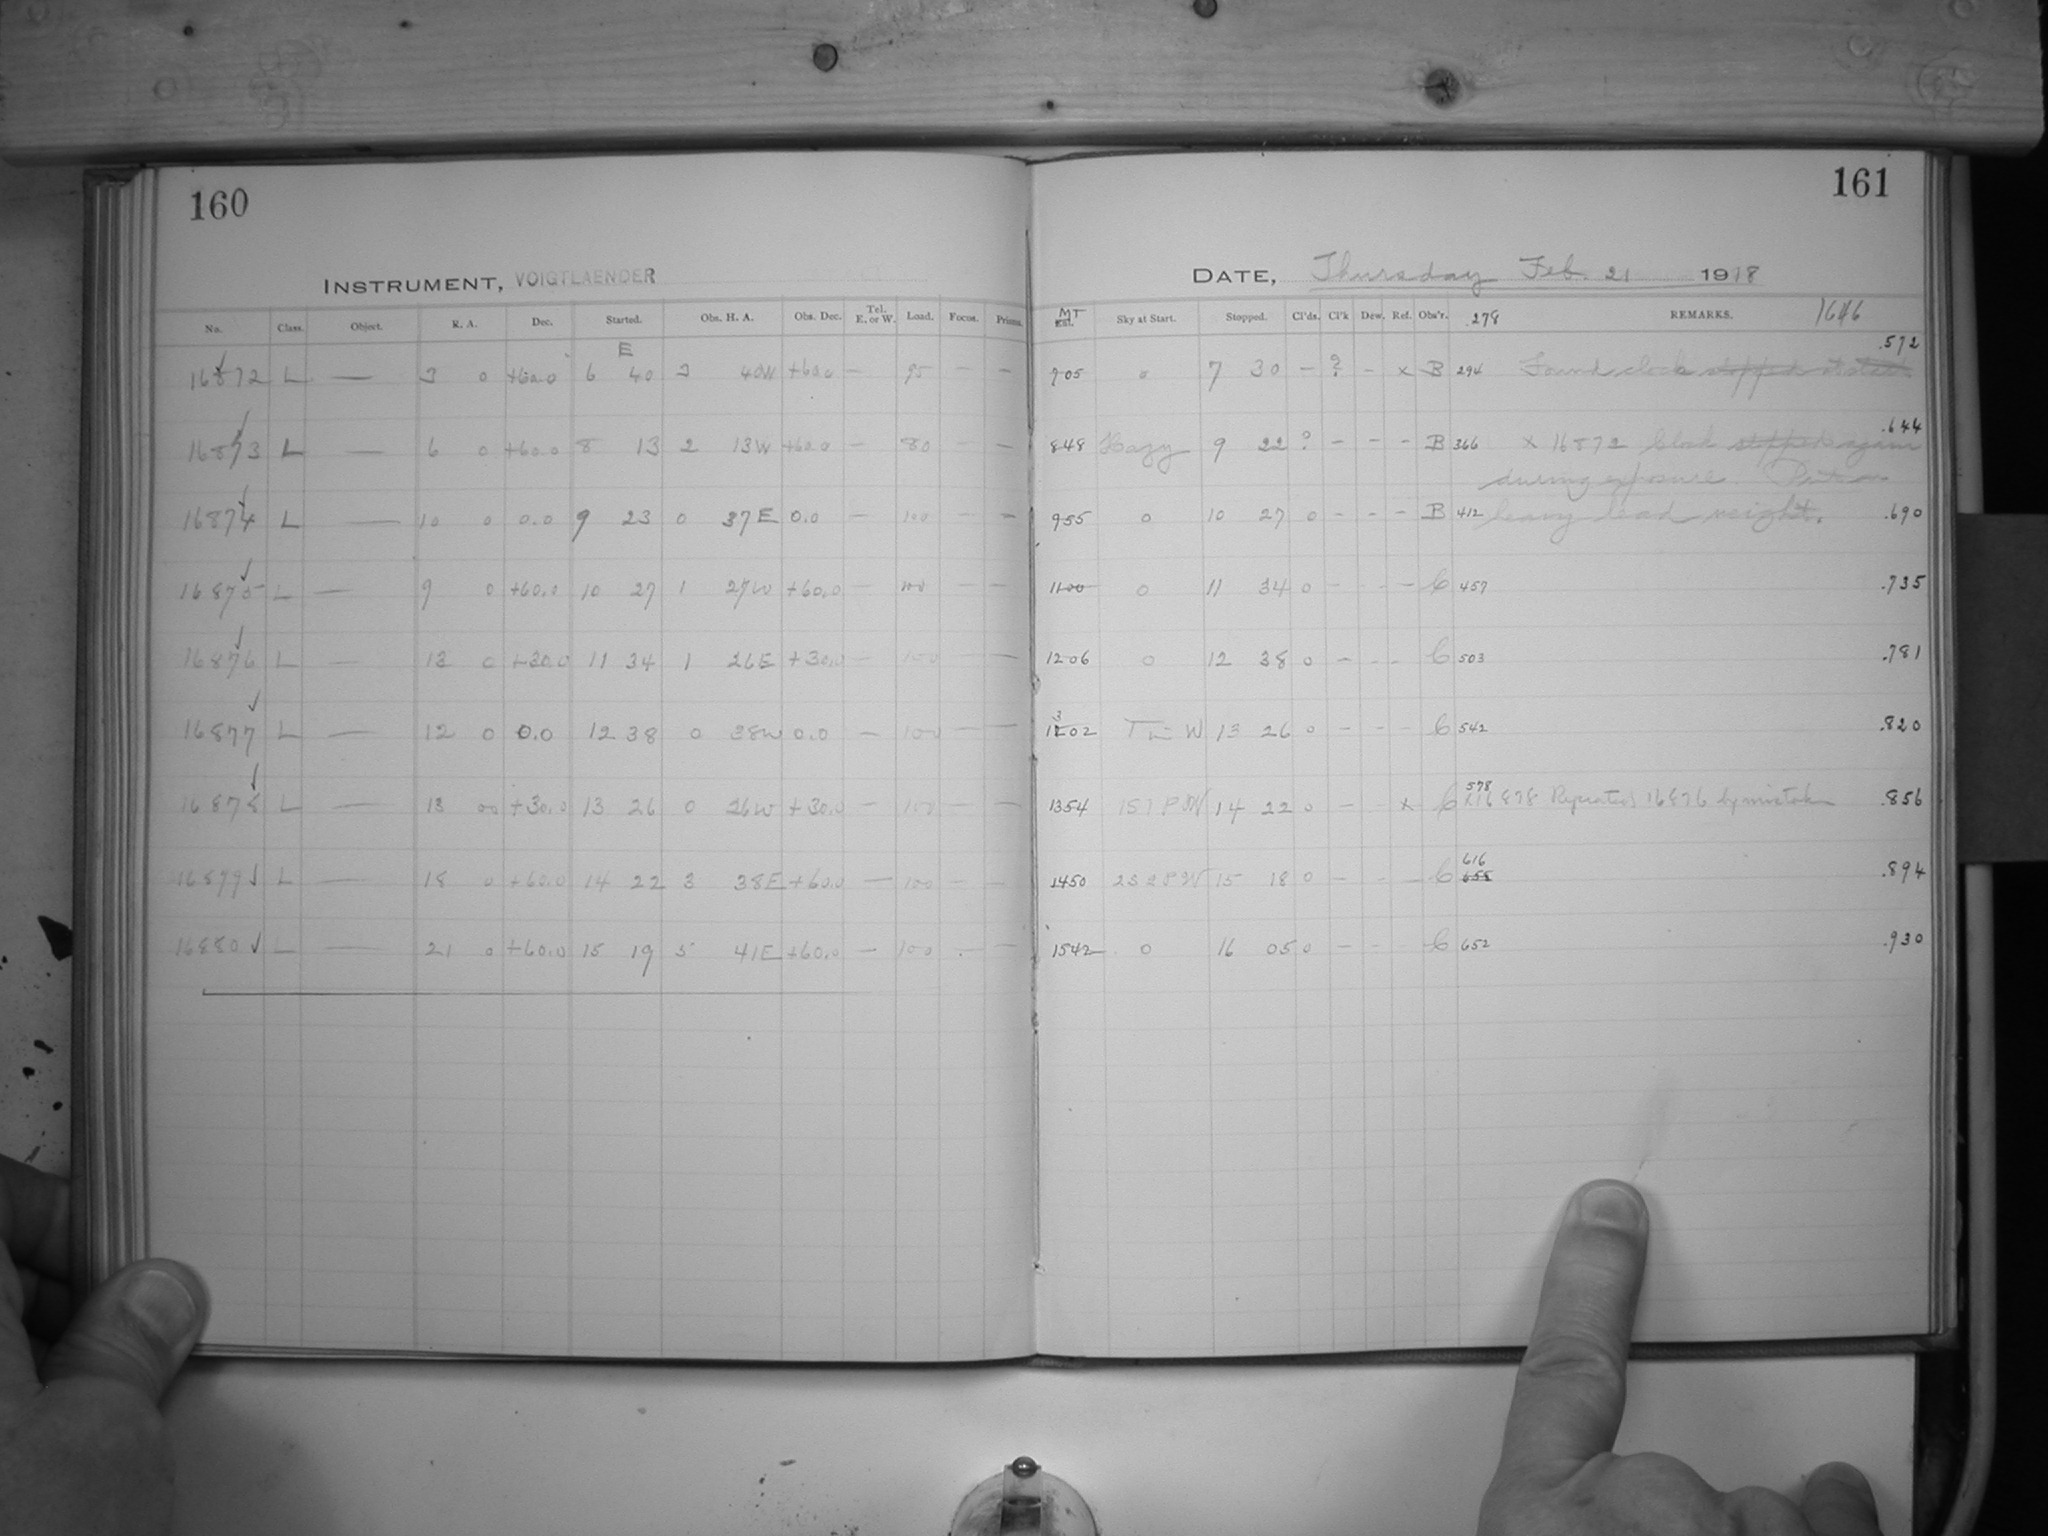 160
161
INSTRUMENT, VOIGTLAENDER
DATE, Thursday Feb. 21 1918
No. Class. Object. R. A. Dec. Started. Obs. H. A. Obs. Dec. Tel. E. or W. Load. Focus. Prisms. MT Sky at Start. Stopped. Cl'ds. Cl'k Dew. Ref. Obs'r. .278 REMARKS. 1646
E .572
16872 L — 3 0 +60.0 6 40 3 40W +60.0 — 95 — — 705 0 7 30 — ? - x B 294 Found clock stopped at start.
.644
16873 L — 6 0 +60.0 8 13 2 13W +60.0 — 80 — — 848 Hazy 9 22 ? - - - B 366 x 16872 Clock stopped again
during exposure. Put on
16874 L — 10 0 0.0 9 23 0 37E 0.0 — 100 — — 955 0 10 27 0 - - - B 412 heavy lead weight. .690
16875 L — 9 0 +60.0 10 27 1 27W +60.0 — 100 — — 1100 0 11 34 0 - - - C 457 .735
16876 L — 13 0 +30.0 11 34 1 26E +30.0 — 100 — 1206 0 12 38 0 - - - C 503 .781
16877 L — 12 0 0.0 12 38 0 38W 0.0 — 100 — — 1302 W 13 26 0 - - - C 542 .820
578
16878 L — 13 00 +30.0 13 26 0 26W +30.0 — 100 — — 1354 157 P W 14 22 0 - - x C x16878 Repeated 16876 by mistake .856
616
16879 L — 18 0 +60.0 14 22 3 38E +60.0 — 100 — — 1450 232 P W 15 18 0 - - — C 655 .894
16880 L — 21 0 +60.0 15 19 5 41E +60.0 — 100 - — 1542 0 16 05 0 - - - C 652 .930